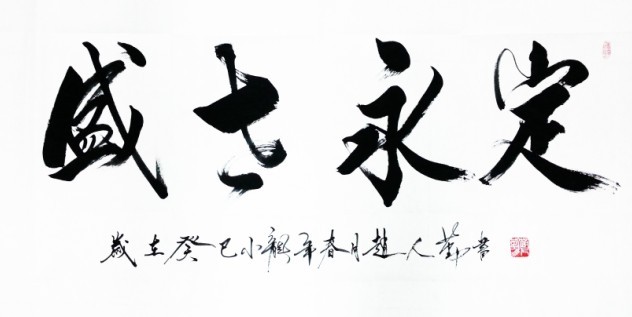 盛世永定
歲在癸巳小龍年春月趙人書